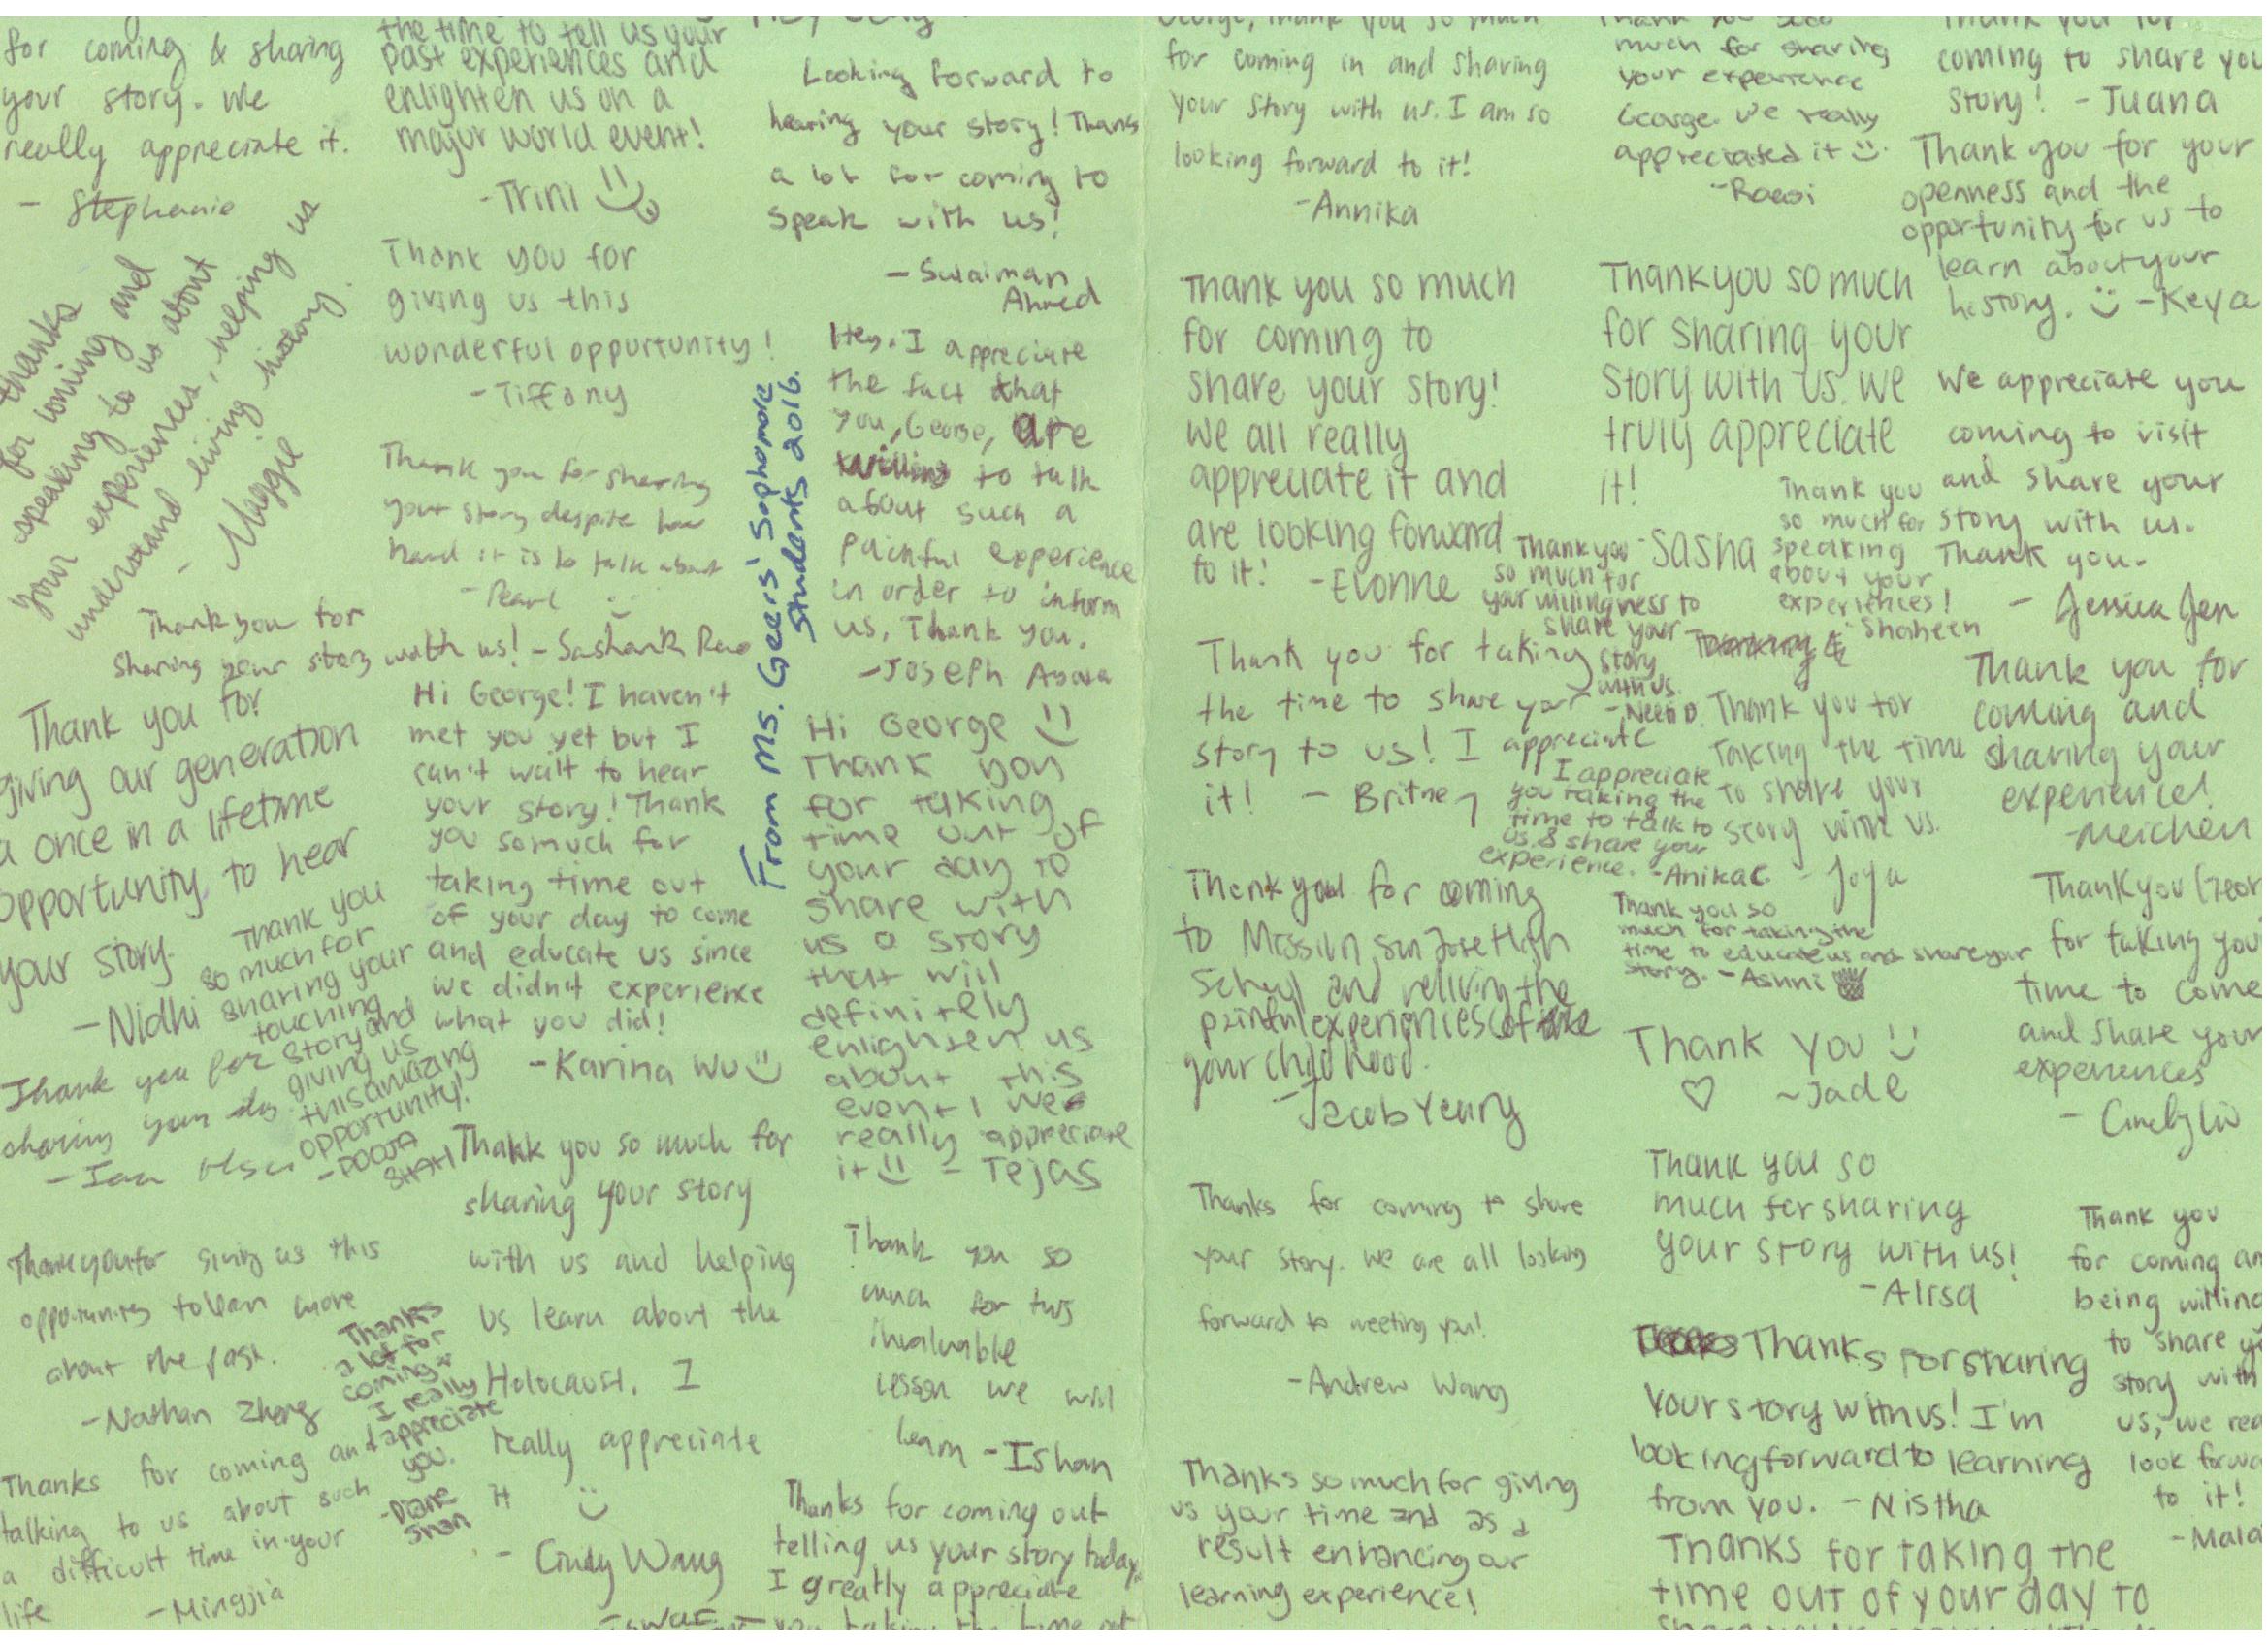 for coming & sharing
your story. We
really appreciate it.
- Stephanie
thanks
for coming and
speaking to us about
your experiences, helping us
understand living history.
- Maggie
Thank you for
sharing your story with us! - Sashank Rao
Thank you for
giving our generation
a once in a lifetime
opportunity to hear
your story.
- Nidhi
Thank you
so much for
sharing your
touching
story and
giving us
this amazing
opportunity!
- POOJA
SHAH
Thank you for
sharing your
- Ian
Thank you for giving us this
opportunity to learn more
about the past.
- Nathan Zheng
Thanks
a lot for
coming
I really
appreciate
you.
- Diane
Shan
Thanks for coming and
talking to us about such
a difficult time in your
life
- Mingjia
the time to tell us your
past experiences and
enlighten us on a
major world event!
- Trini
Thank you for
giving us this
wonderful opportunity!
- Tiffany
Thank you for sharing
your story despite how
hard it is to talk about
- Pearl
Hi George! I haven't
met you yet but I
can't wait to hear
your story! Thank
you so much for
taking time out
of your day to come
and educate us since
we didn't experience
what you did!
- Karina Wu
Thank you so much for
sharing your story
with us and helping
us learn about the
Holocaust. I
really appreciate
it
- Cindy Wang
From Ms. Geers' Sophomore
Students 2016.
Looking forward to
hearing your story! Thanks
a lot for coming to
speak with us!
- Sulaiman
Ahmed
Hey, I appreciate
the fact that
you, George, are
willing to talk
about such a
painful experience
in order to inform
us, Thank you.
- Joseph
Hi George
Thank you
for taking
time out of
your day to
share with
us a story
that will
definitely
enlighten us
about this
event! We
really appreciate
it - Tejas
Thank you so
much for this
invaluable
lesson we will
learn - Ishan
Thanks for coming out
telling us your story today.
I greatly appreciate
you taking the time out
George, thank you so much
for coming in and sharing
your story with us. I am so
looking forward to it!
- Annika
Thank you so much
for coming to
share your story!
We all really
appreciate it and
are looking forward
to it! - Evonne
Thank you
so much for
your willingness to
share your
story
with us.
- Neen D.
Thank you for taking
the time to share your
story to us! I appreciate
it! - Britney
I appreciate
you taking the
time to talk to
us & share your
experience. - Anika C.
Thank you for coming
to Mission San Jose High
School and reliving the
painful experiences of
your childhood.
- Jacob Yenry
Thanks for coming to share
your story. We are all looking
forward to meeting you!
- Andrew Wang
Thanks so much for giving
us your time and as a
result enhancing our
learning experience!
Thank you sooo
much for sharing
your experience
George. We really
appreciated it
Thank you so much
for sharing your
story with us. We
truly appreciate
it!
- Sasha
Thank you
so much for
speaking
about your
experiences!
- Shaheen
Thank you for
taking the time
to share your
story with us.
- Joya
Thank you so
much for taking the
time to educate us and share your
story. - Ashni
Thank you
~Jade
Thank you so
much for sharing
your story with us!
- Alisa
Thanks for sharing
your story with us! I'm
looking forward to learning
from you. - Nistha
Thanks for taking the
time out of your day to
Thank you for
coming to share you
story! - Juana
Thank you for your
openness and the
opportunity for us to
learn about your
history. - Keya
We appreciate you
coming to visit
and share your
story with us.
Thank you.
- Jessica Jen
Thank you for
coming and
sharing your
experience!
- Meichen
Thank you Geor
for taking you
time to come
and share your
experiences
- Cindy Liu
Thank you
for coming an
being willing
to share y
story with
us, we rea
look forwa
to it!
- Mala